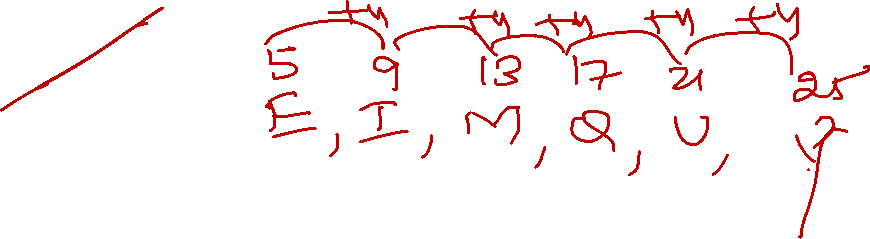 +4 +4 +4 +4 +4
5 9 13 17 21 25
E, I, M, Q, U, Y